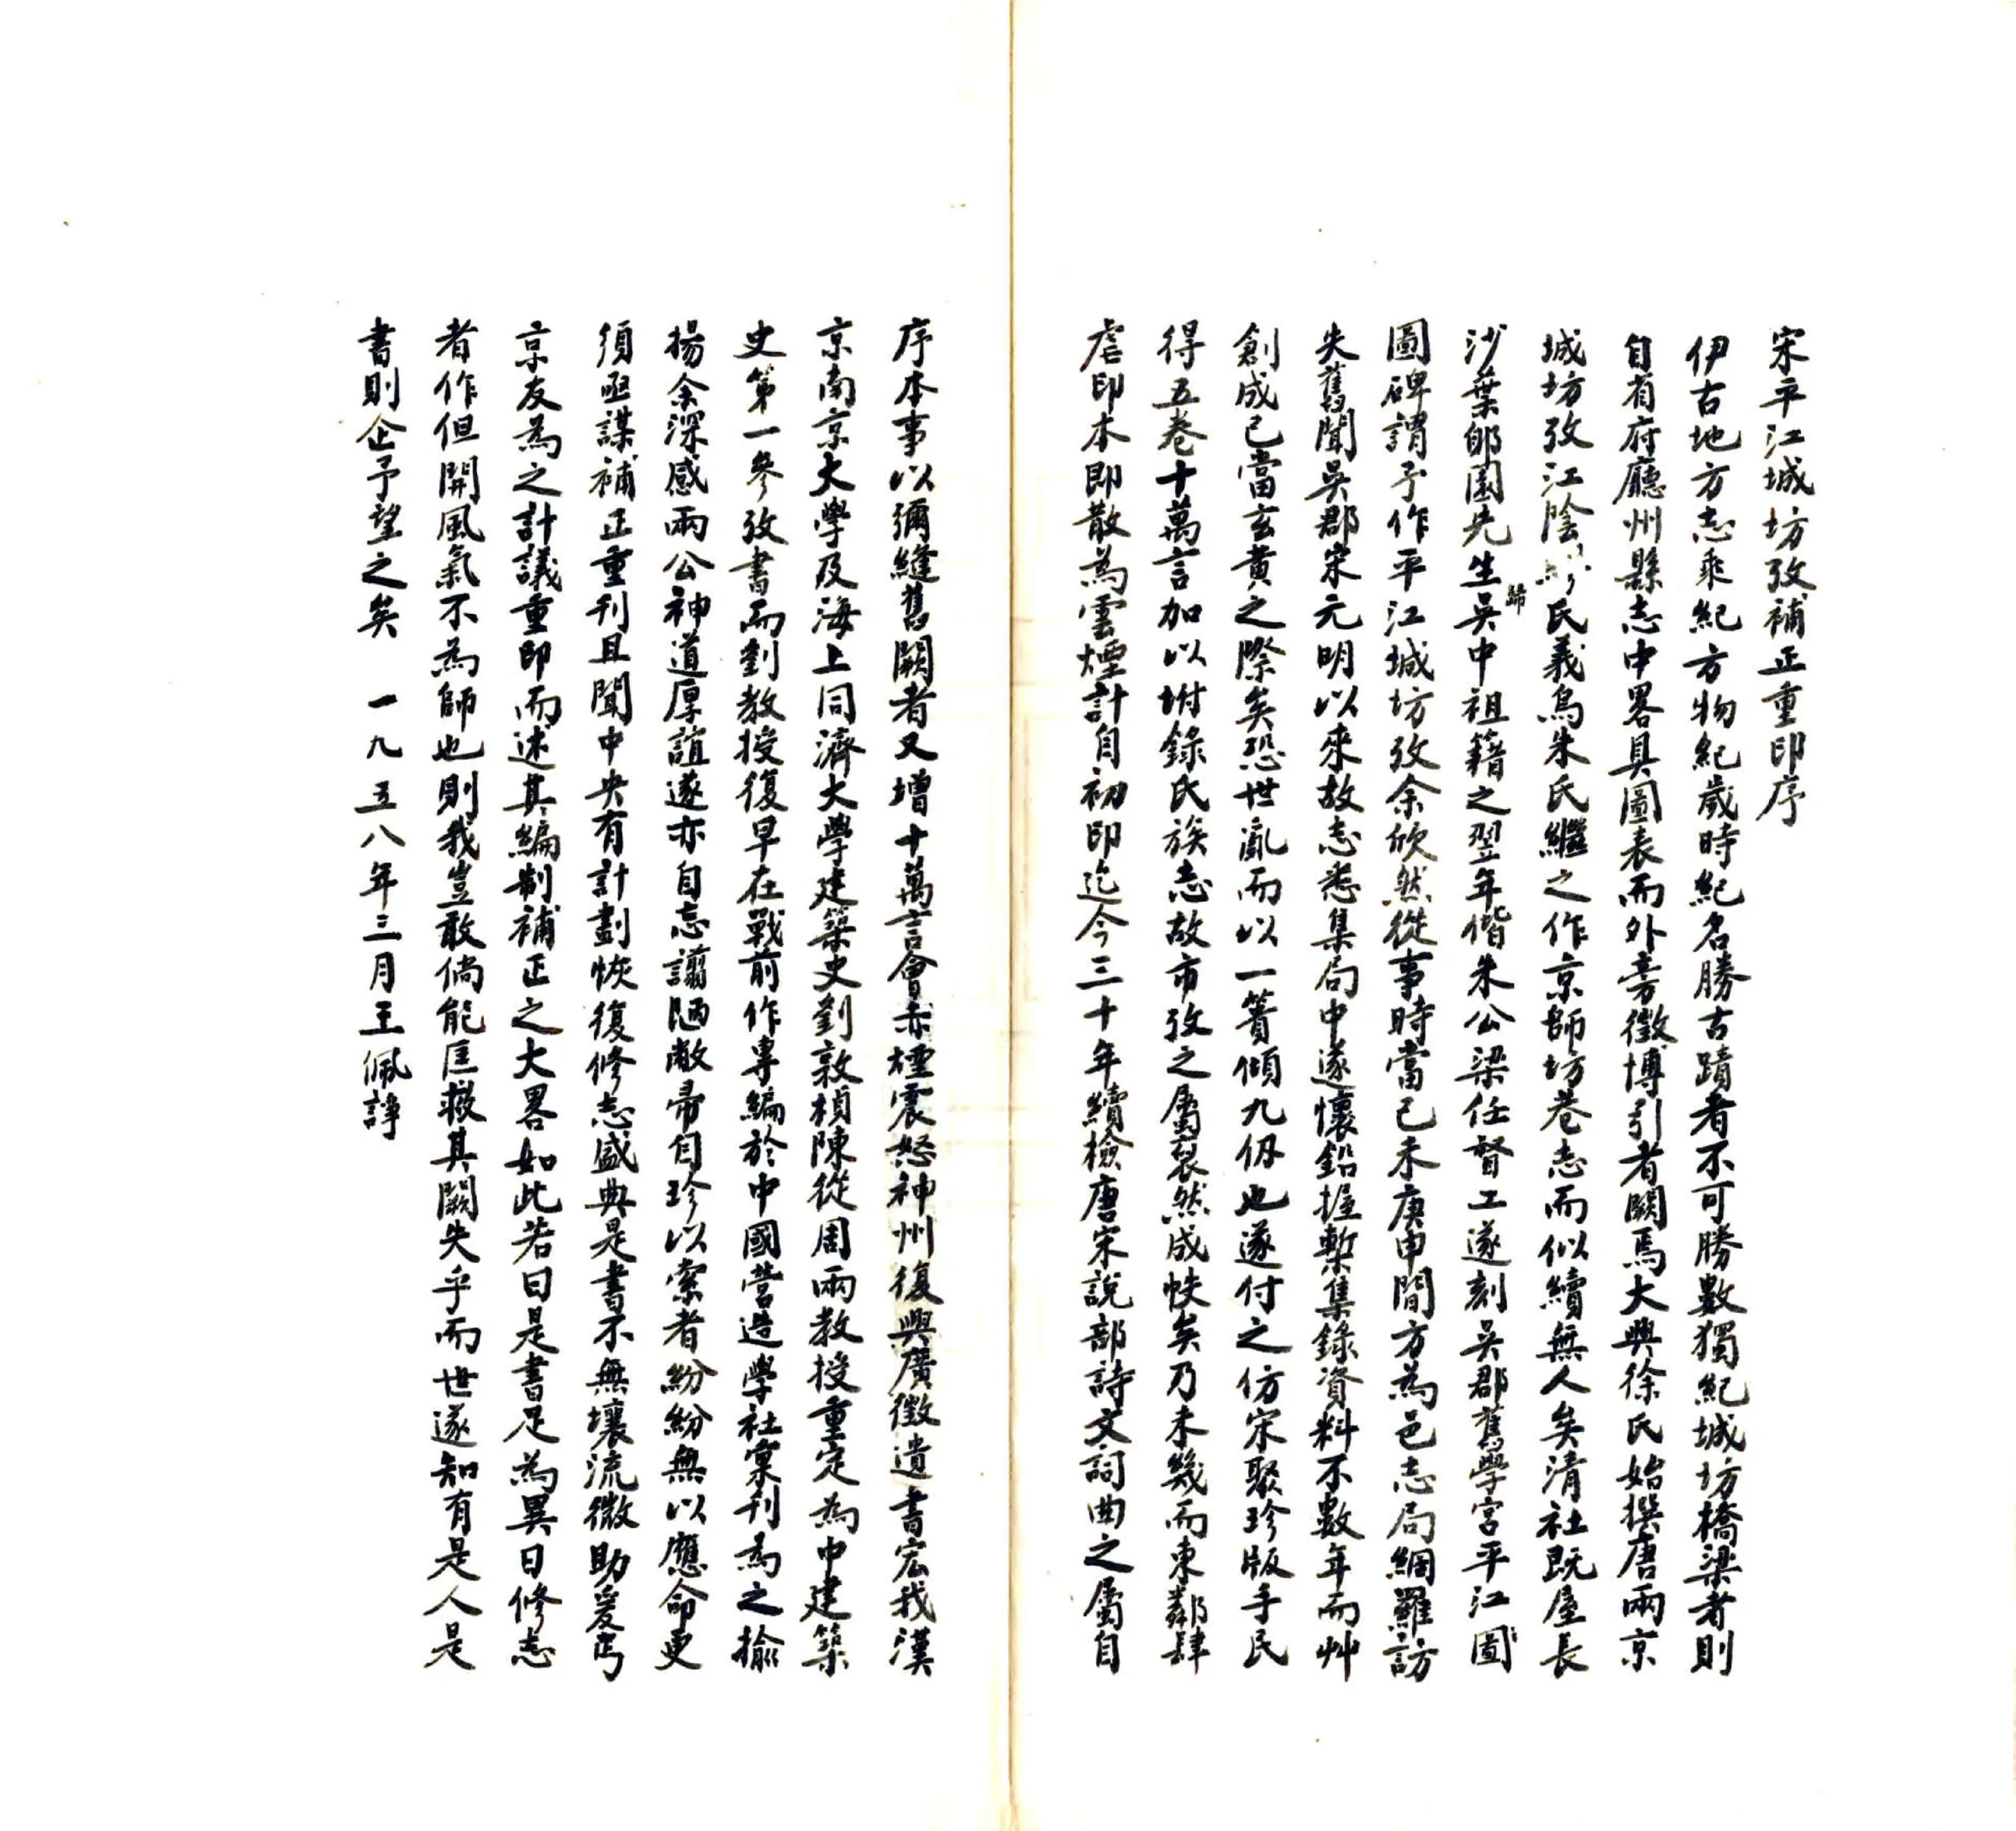 宋平江城坊攷補正重印序
伊古地方志乘紀方物紀歲時紀名勝古蹟者不可勝數獨紀城坊橋梁者則
自省府廳州縣志中畧具圖表而外旁徵博引者闕焉大興徐氏始撰唐兩京
城坊攷江陰繆氏義烏朱氏繼之作京師坊巷志而似續無人矣清社既屋長
沙葉郋園先生歸吳中祖籍之翌年偕朱公梁任督工遂刻吳郡舊學宮平江圖
圖碑謂予作平江城坊攷余欣然從事時當己未庚申間方為邑志局網羅訪
失舊聞吳郡宋元明以來故志悉集局中遂懷鉛握槧集錄資料不數年而艸
創成已當玄黃之際矣恐世亂而以一簣傾九仞也遂付之仿宋聚珍版手民
得五卷十萬言加以坿錄氏族志故市攷之屬裒然成帙矣乃未幾而東鄰肆
虐印本即散為雲煙計自初印迄今三十年續檢唐宋說部詩文詞曲之屬自
序本事以彌縫舊闕者又增十萬言會赤熛震怒神州復興廣徵遺書宏我漢
京南京大學及海上同濟大學建築史劉敦楨陳從周兩教授重定為中建築
史第一參攷書而劉教授復早在戰前作專編於中國營造學社彙刊為之揄
揚余深感兩公神道厚誼遂亦自忘譾陋敝帚自珍以索者紛紛無以應命更
須亟謀補正重刊且聞中央有計劃恢復修志盛典是書不無壤流微助爰丐
京友為之計議重印而述其編制補正之大畧如此若曰是書足為異日修志
者作但開風氣不為師也則我豈敢倘能匡救其闕失乎而世遂知有是人是
書則企予望之矣 一九五八年三月王佩諍